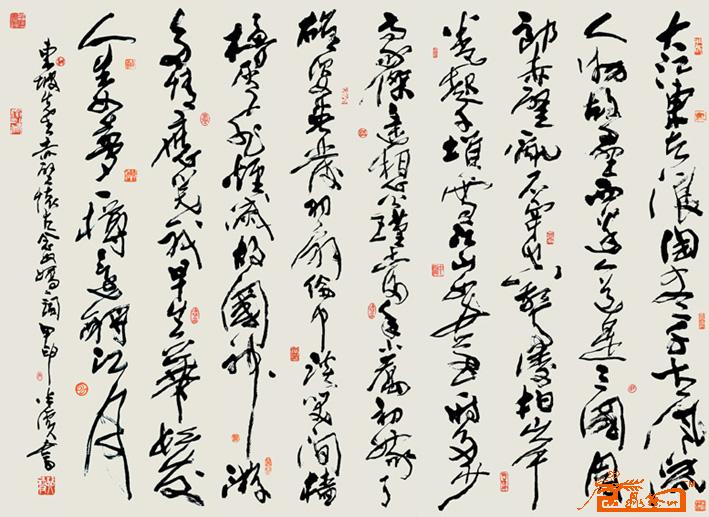 大江東去浪淘盡千古風流
人物故壘西邊人道是三國周
郎赤壁亂石穿空驚濤拍岸
捲起千堆雪江山如畫一時多少
豪傑遙想公瑾當年小喬初嫁了
雄姿英發羽扇綸巾談笑間檣
櫓灰飛煙滅故國神游
多情應笑我早生華髮
人生如夢一樽還酹江月
東坡先生赤壁懷古念奴嬌詞甲申書